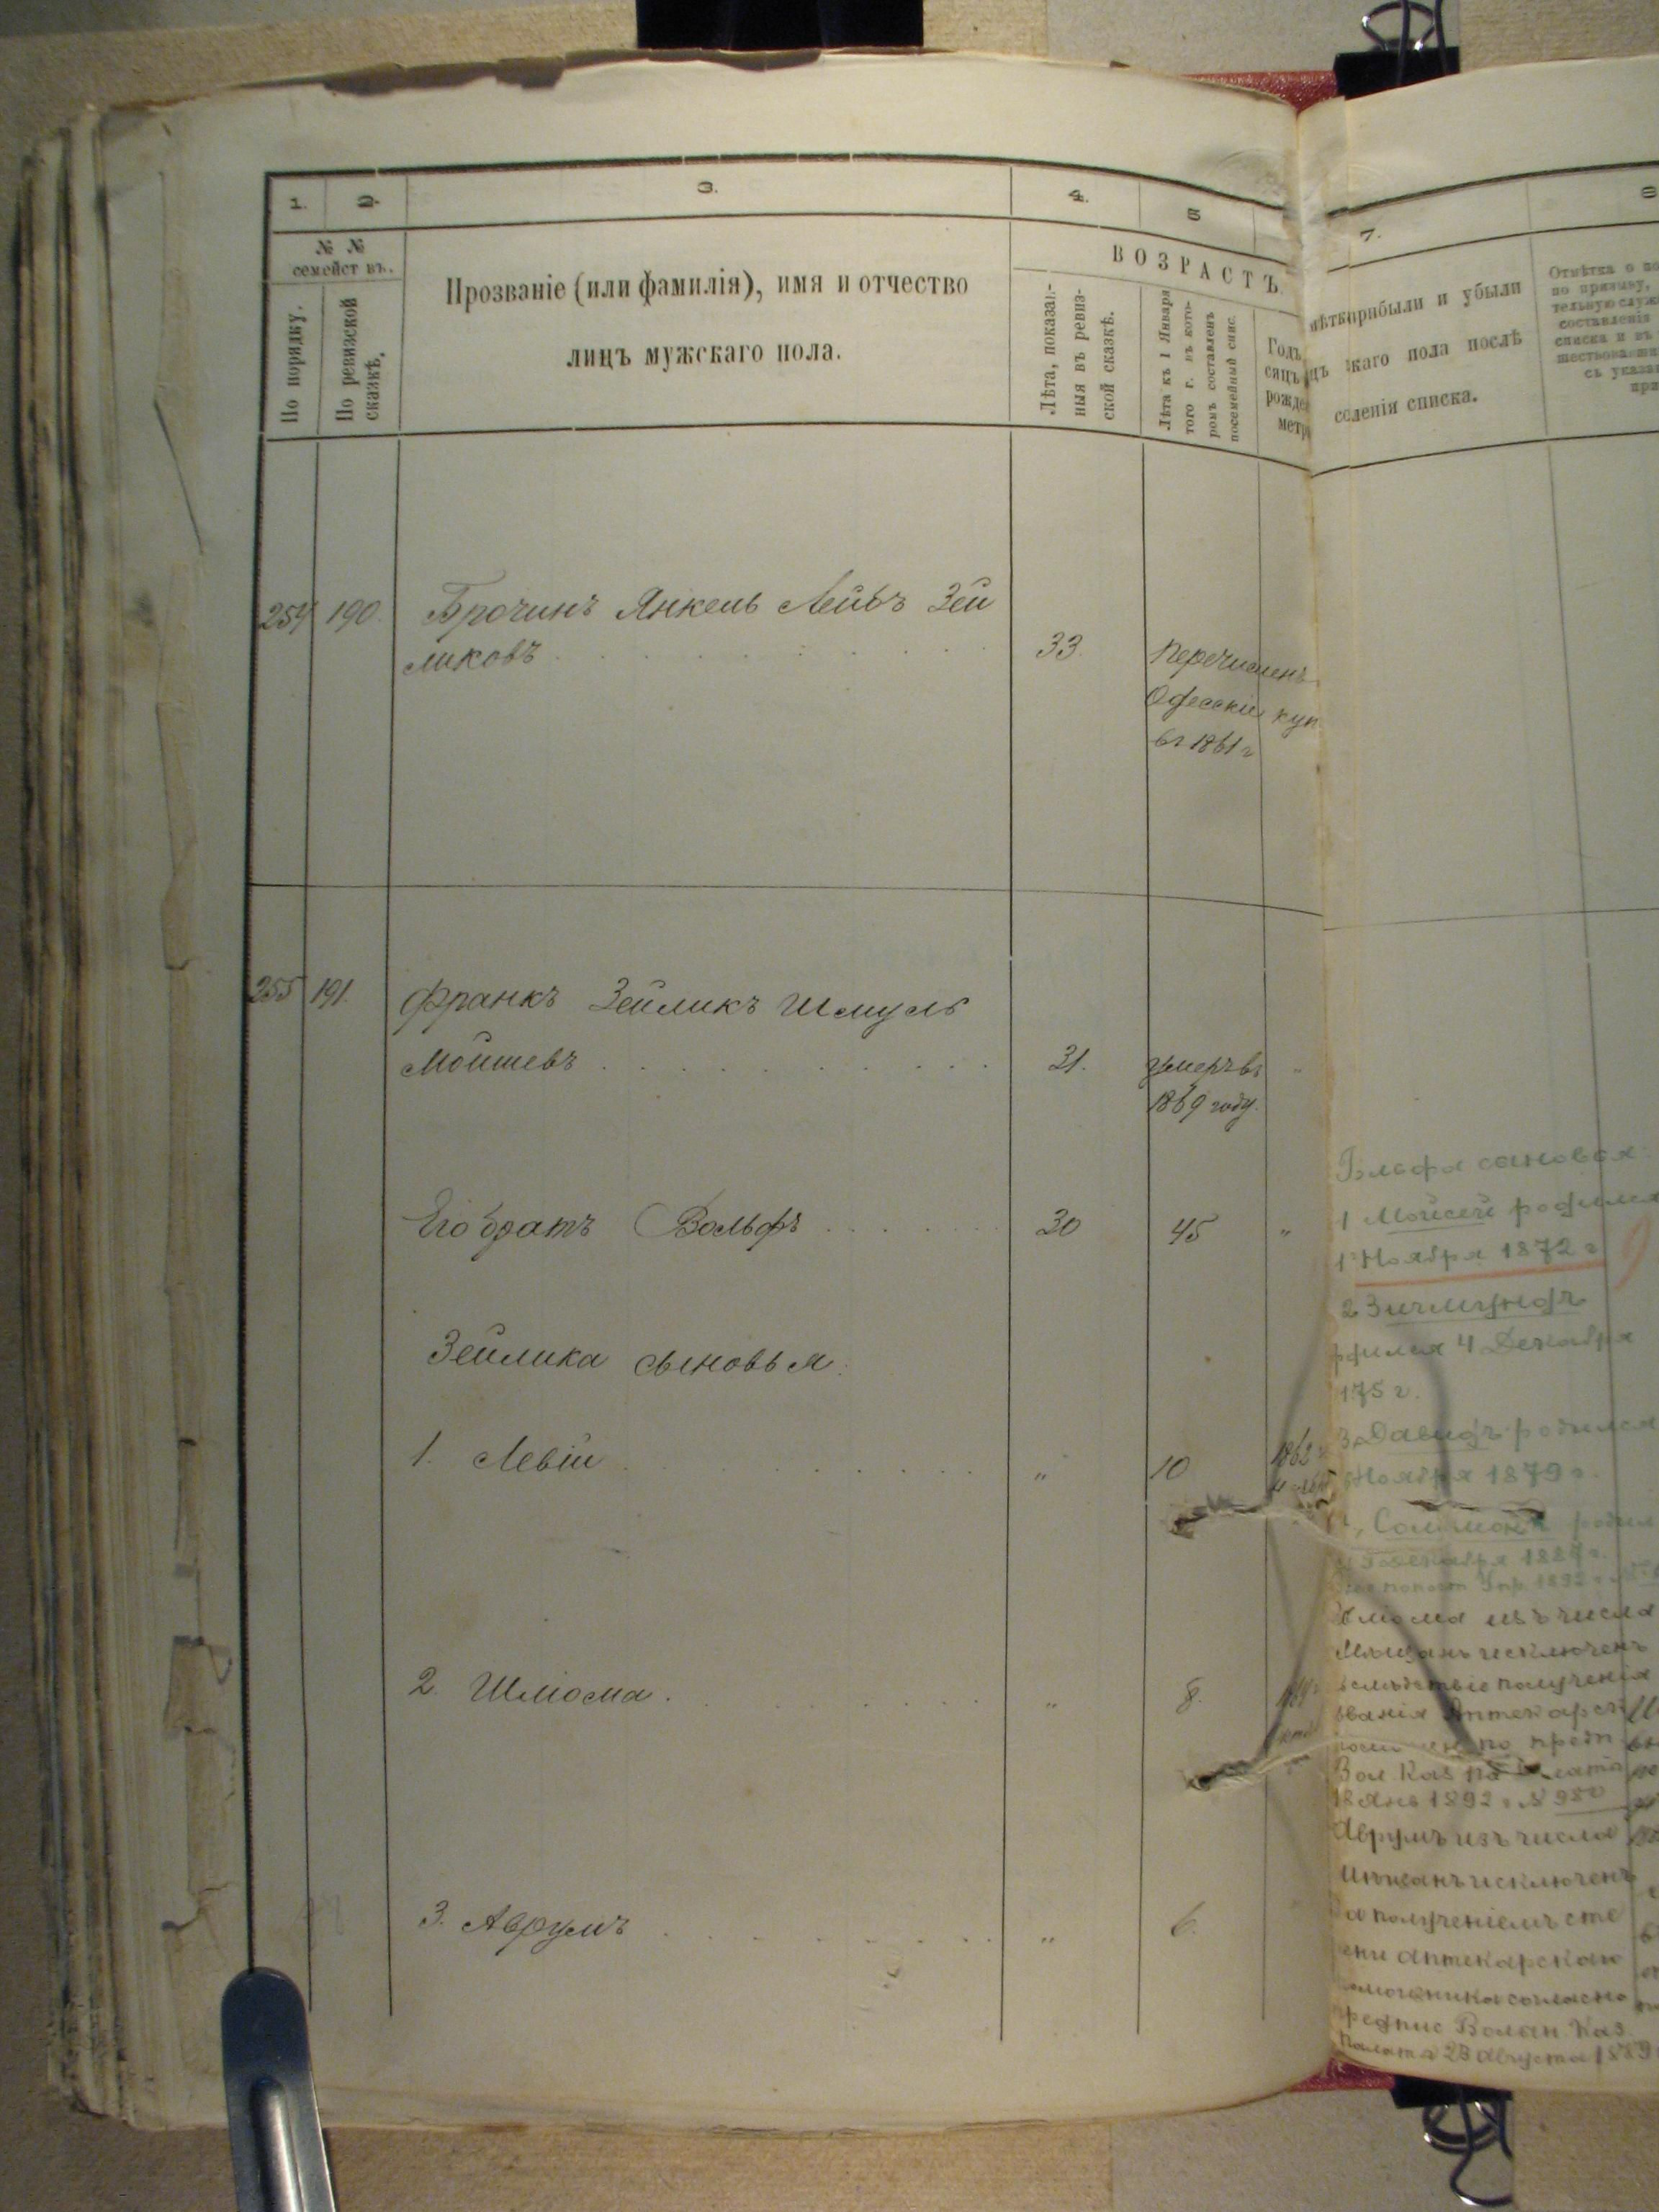 1.
2.
3.
4.
5
№ №
семействъ.
По порядку.
По ревизской
сказкѣ.
Прозваніе (или фамилія), имя и отчество
лицъ мужскаго пола.
ВОЗРАСТЪ.
Лѣта, показан-
ныя въ ревиз-
ской сказкѣ.
Лѣта къ 1 Января
того г. въ кото-
ромъ составленъ
посемейный спис.
Годъ,
сяцъ
рожде
метр
254 190. Брочинъ Янкель Лейбъ Зей
ликовъ 33.
Перечисленъ
Одесскій куп.
въ 1861 г
255 191. Франкъ Зейликъ Шмуль
Мошшевъ 31. умеръ въ "
1869 году.
Его братъ Вольфъ 30 45 "
Зейлика сыновья:
1. Левій " 10 1862
2. Шліома. " 8.
3. Аврумъ " 6.
7.
прибыли и убыли
скаго пола послѣ
списка.
Отмѣтка о
по призыву,
тельную служ
составленія
списка и въ
шествовавши
съ указан
при
Вольфа сыновья:
1 Мойсей родился
1 Ноября 1872 г
2 Зигмундъ
4 Декабря
175 г.
3 Давидъ родился
Ноября 1879 г.
Соломонъ родил
1892
Шліома изъ числа
Мѣщанъ исключенъ
вслѣдствіе полученія
званія Аптекарск
по предп
Вол. Каз Па
Янв 1892 г № 980
Аврумъ изъ числа
мѣщанъ исключенъ
за полученіемъ сте
пени аптекарскаго
помощника согласно
предпис Волын. Каз.
Палаты 23 Августа 1889